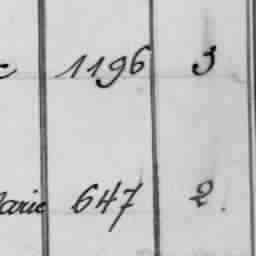 1196 3
arie 647 2.